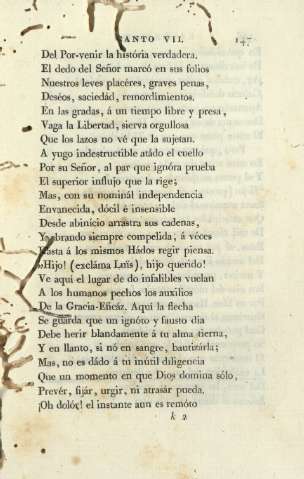 CANTO VII. 147
Del Por-venir la história verdadera.
El dedo del Señor marcó en sus folios
Nuestros leves placéres, graves penas,
Deséos, saciedád, remordimientos.
En las gradas, á un tiempo libre y presa,
Vaga la Libertad, sierva orgullosa
Que los lazos no vé que la sujetan.
A yugo indestructible atádo el cuello
Por su Señor, al par que ignóra prueba
El superior influjo que la rige;
Mas, con su nominál independencia
Envanecida, dócil é insensible
Desde abinício arrastra sus cadenas,
Y obrando siempre compelida, á véces
Hasta á los mismos Hádos regir piensa.
»Hijo! (excláma Luïs), hijo querido!
Ve aquí el lugar de do infalibles vuelan
A los humanos pechos los auxílios
De la Gracia-Eficáz. Aquí la flecha
Se guarda que un ignóto y fausto dia
Debe herir blandamente á tu alma tierna,
Y en llanto, si nó en sangre, bautizárla;
Mas, no es dádo á tu inútil diligencia
Que un momento en que Dios domina sólo,
Prevér, fijár, urgir, ni atrasár pueda.
¡Oh dolór! el instante aun es remóto
k 2